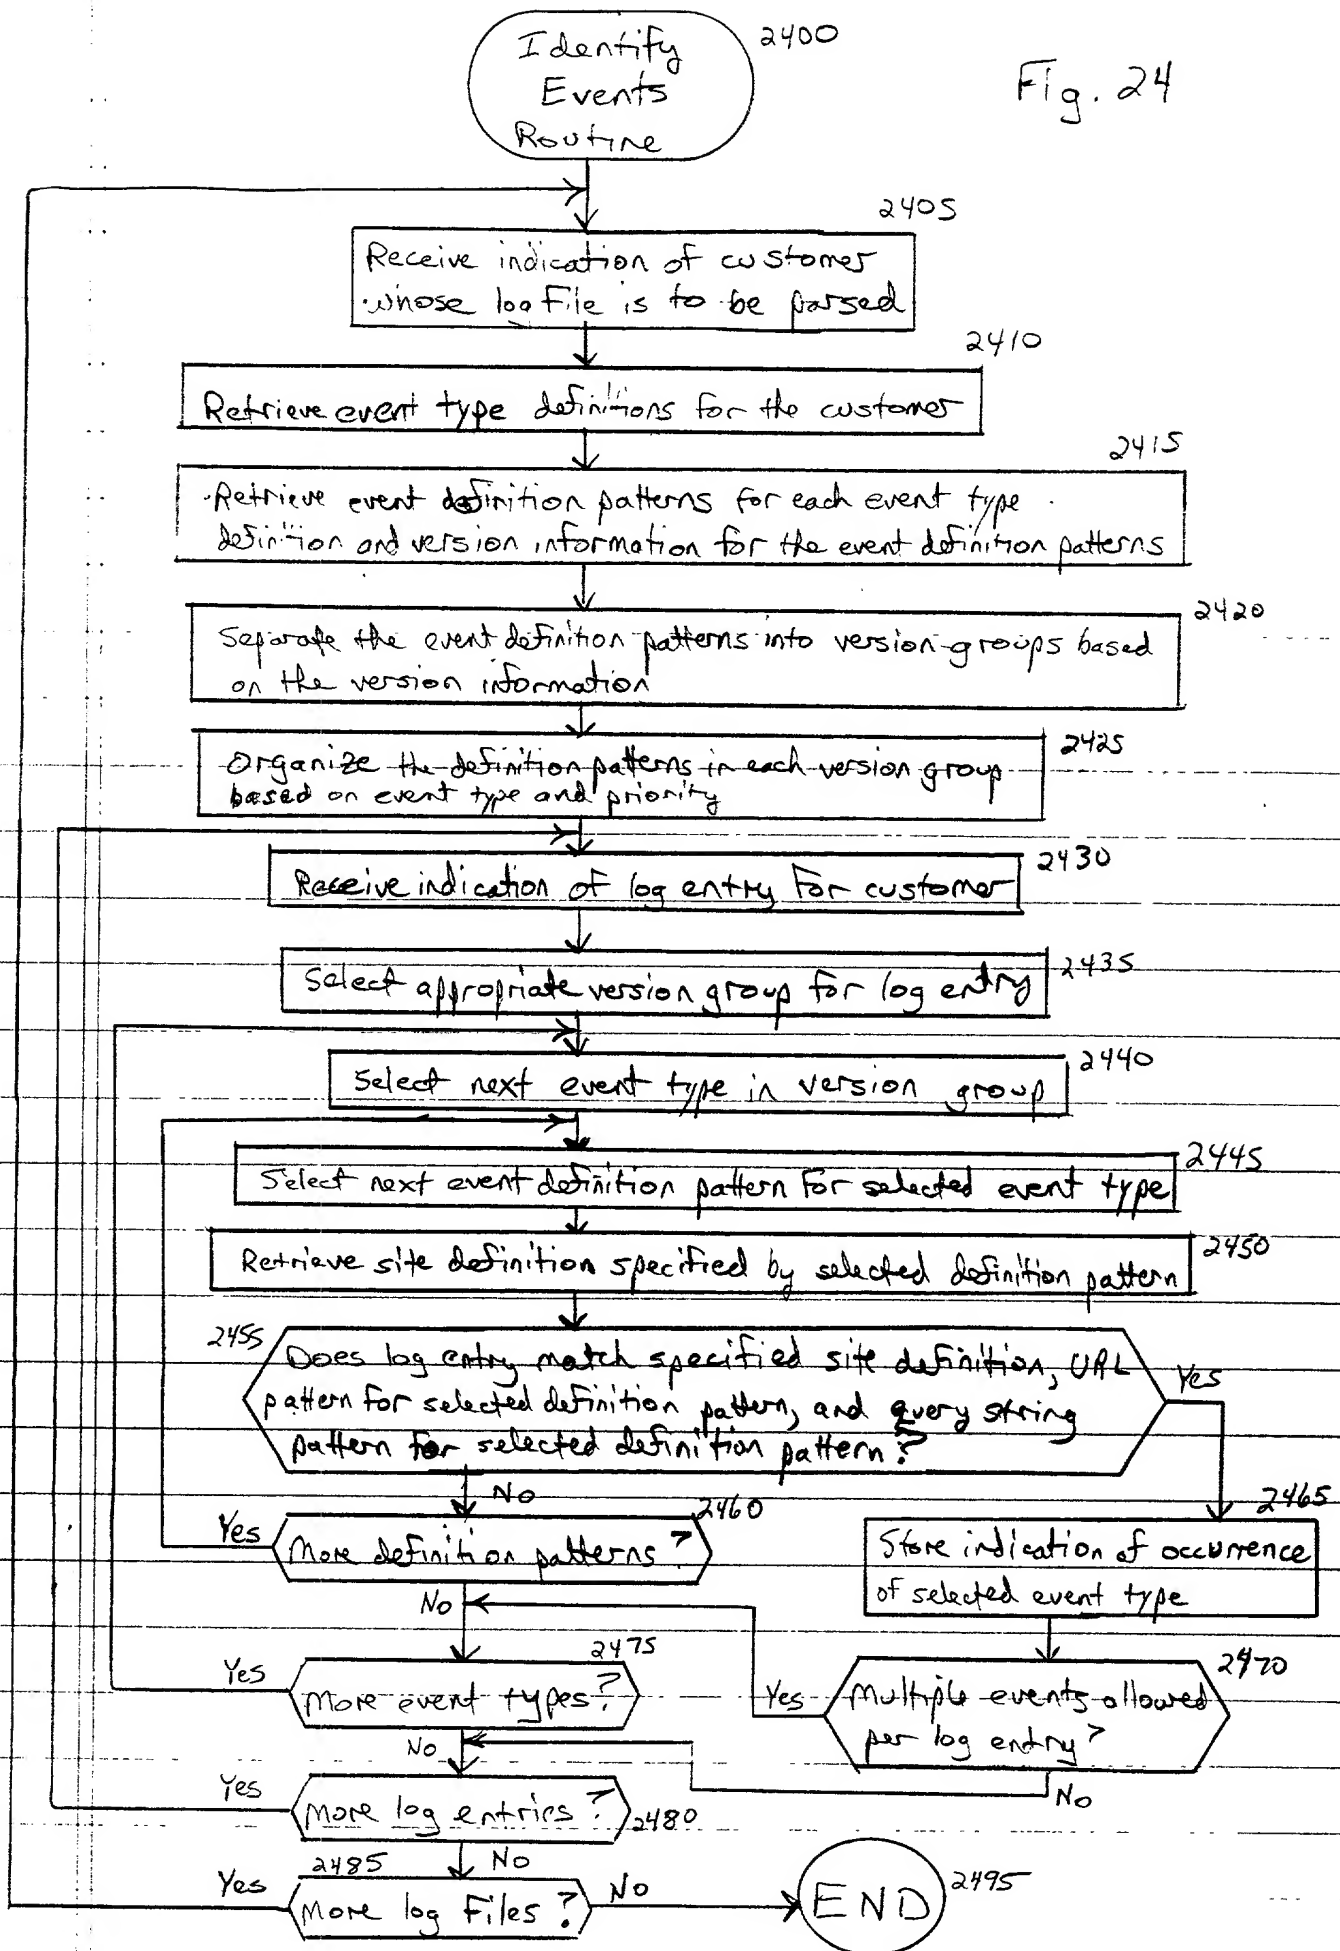 Identify
Events
Routine
2400
Fig. 24
2405
Receive indication of customer
whose log File is to be parsed
2410
Retrieve event type definitions for the customer
2415
Retrieve event definition patterns for each event type
definition and version information for the event definition patterns
2420
Separate the event definition patterns into version groups based
on the version information
2425
Organize the definition patterns in each version group
based on event type and priority
2430
Receive indication of log entry for customer
2435
Select appropriate version group for log entry
2440
Select next event type in version group
2445
Select next event definition pattern for selected event type
2450
Retrieve site definition specified by selected definition pattern
2455
Does log entry match specified site definition, URL
pattern for selected definition pattern, and query string
pattern for selected definition pattern?
Yes
No
2460
Yes
More definition patterns?
2465
Store indication of occurrence
of selected event type
No
2475
Yes
More event types?
2470
Yes
Multiple events allowed
per log entry?
No
No
Yes
More log entries?
2480
2485
No
Yes
More log Files?
No
END
2495